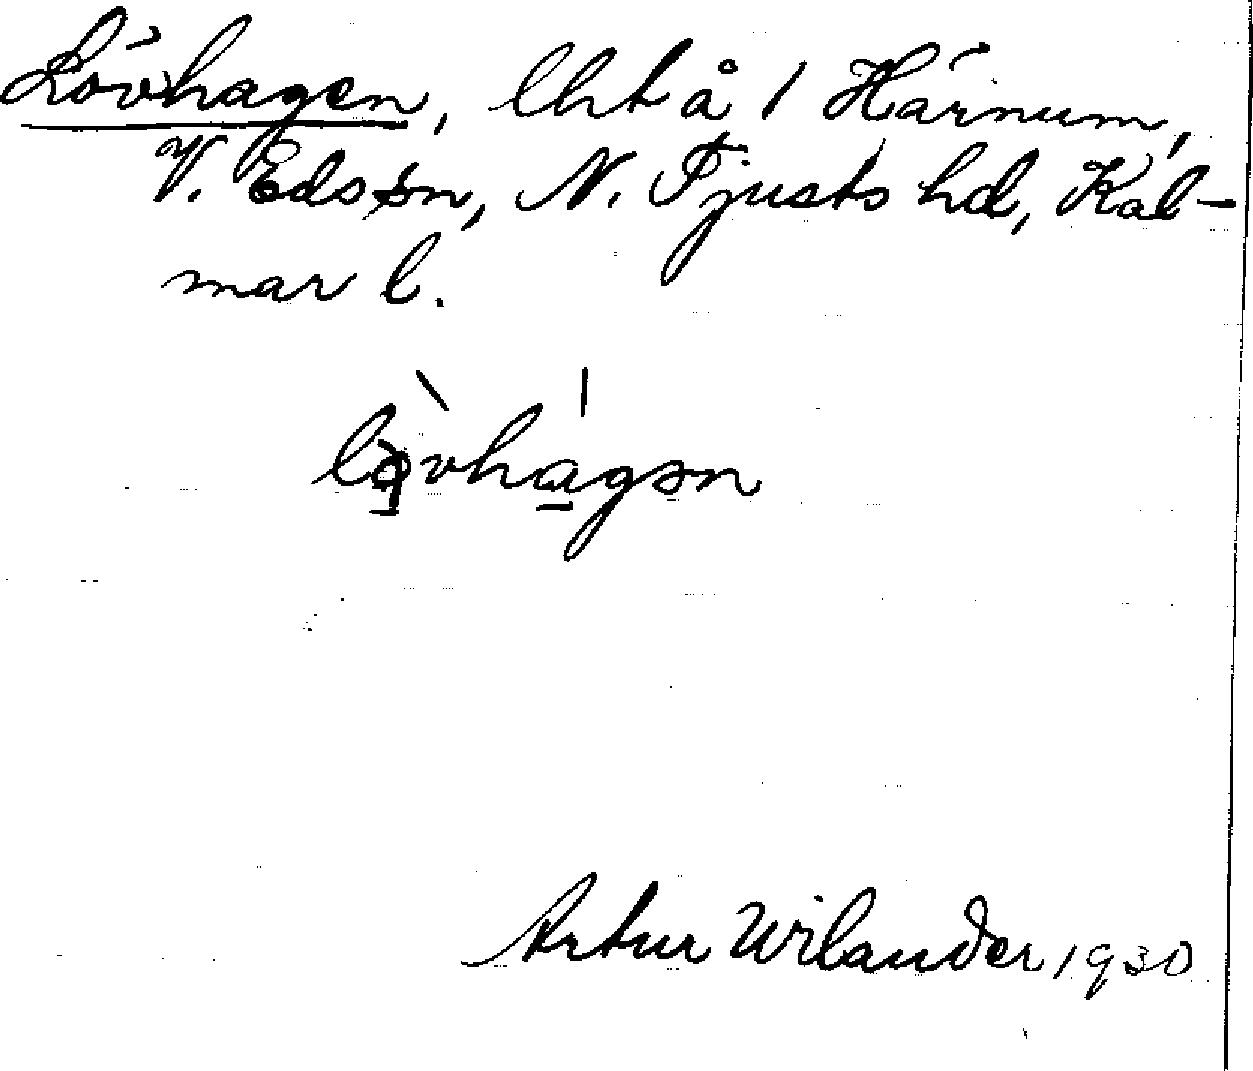 Lövhagen, lht å 1 Härnum,
V. Edssn, N. Tjusts hd, Kal-
mar l.
lǫ̀vhágən
Artur Wilander 1930